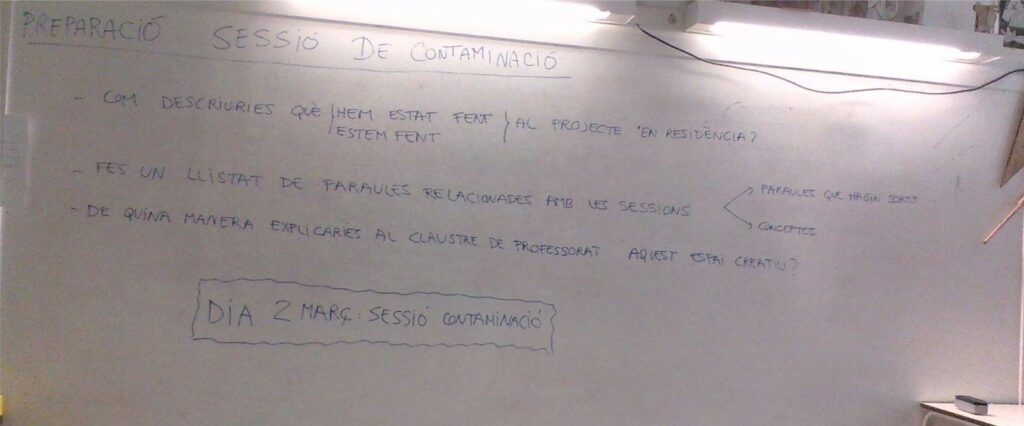 PREPARACIÓ SESSIÓ DE CONTAMINACIÓ
- COM DESCRIURIES QUÈ HEM ESTAT FENT
ESTEM FENT
AL PROJECTE 'EN RESIDÈNCIA?
- FES UN LLISTAT DE PARAULES RELACIONADES AMB LES SESSIONS
PARAULES QUE HAGIN SORTIT
CONCEPTES
- DE QUINA MANERA EXPLICARIES AL CLAUSTRE DE PROFESSORAT AQUEST ESPAI CREATIU?
DIA 2 MARÇ: SESSIÓ CONTAMINACIÓ